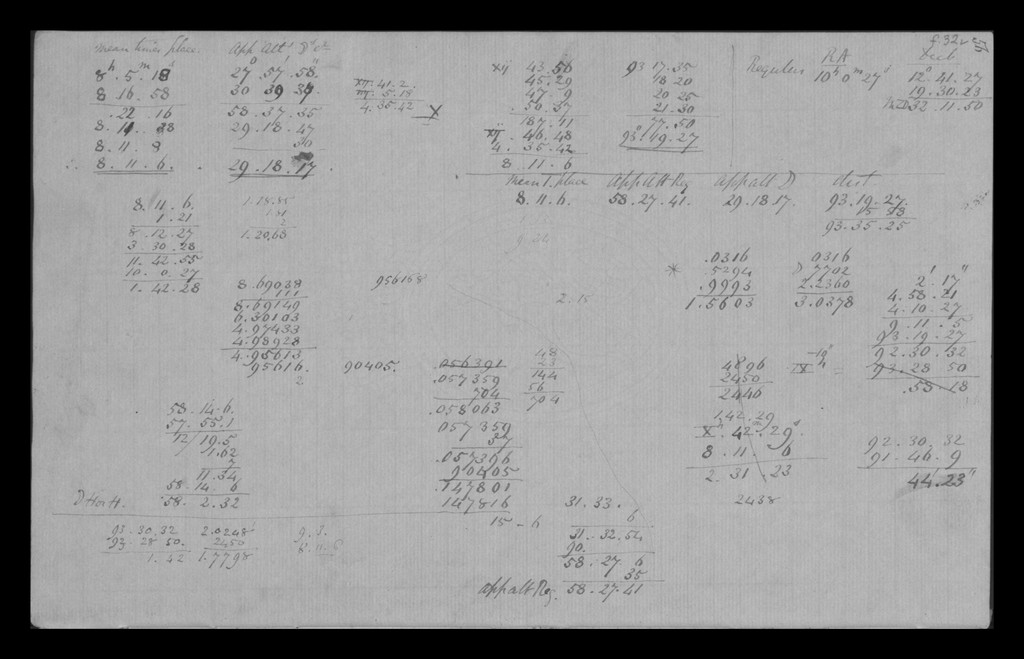 f. 32v
mean times place. App Alt D's c
8h. 5m. 18s 27°. 57'. 58"
8. 16. 58 30 39 37
. 22. 16 58. 37. 35
8. 11. 38 29. 18. 47
8. 11. 8 30
∴ 8. 11. 6. 29. 18. 17
xij. 41. 2
5. 18
4. 35. 42 X
xij 43. 56 93 17. 35
45. 29 18 20
47. 9 20 25
. 50. 37 21. 30
187. 41 77. 50
xij. 46. 48 93°. 19. 27
4. 35. 42
8. 11. 6
RA Dist
Regulus 10h 0m 27s 12°. 41. 27
19. 30. 23
32. 11. 50
mean T. place App Alt Reg App alt D dist
8. 11. 6. 58. 27. 41. 29. 18 17. 93. 19. 27.
93. 35. 25
8. 11. 6.
1. 21
8. 12. 27 1. 20,63
3. 30. 28
11. 42. 55
10. 0. 27
1. 42. 28
8. 69038
111
8. 69149
6. 30103
4. 97433
4. 98928
4. 95613
95616.
2
956158
90405.
.056391
.057359
704
.058063
057359
37
.057396
90405
.147801
147816
15 - 6
48
23
144
56
704
2. 15
.0316 0316
* .5294 D 7702
.9993 2.2360
1.5603 3.0378
2'. 17"
4. 58. 21
4. 10. 27
9. 11. 5
93. 19. 27
92. 30. 32
93. 28 50
. 58. 18
4896
2450
2446
1,42. 29
X. 42. 29s
8. 11. 6
2. 31. 23
2438
92. 30. 32
91. 46. 9
44. 23"
58. 14. 6.
57. 55. 1
12/ 19. 5
1.62
7
11. 34
58. 14. 6
D Hor H. 58. 2. 32
93. 30. 32 2.0248
93. 28 50. 2450
1. 42 1.7798
9. 3.
8. 11. 6
31. 33.
6
31. 32. 54
90.
58. 27. 6
35
app alt Reg. 58. 27. 41